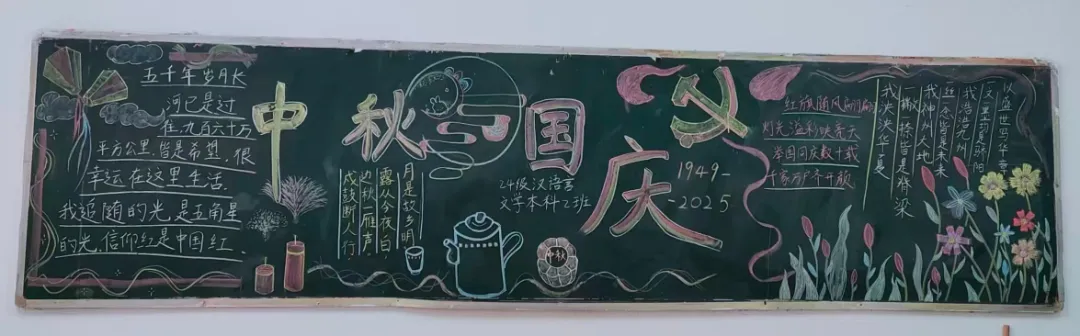 五千年岁月长
河已是过
在,九百六十万
平方公里,皆是希望,很
幸运在这里生活.
我追随的光,是五角星
的光,信仰红,是中国红
中秋与国庆
戍鼓断人行
边秋一雁声
露从今夜白,
月是故乡明
24级汉语言
文学本科乙班
中秋
1949-
-2025
红旗随风
灯光溢彩映春天
举国同庆数十载
千家万户齐开颜
以盛世写华章
文里有骄阳
我浩浩九州
我神州大地
一撇一捺皆是脊梁
我泱泱华夏